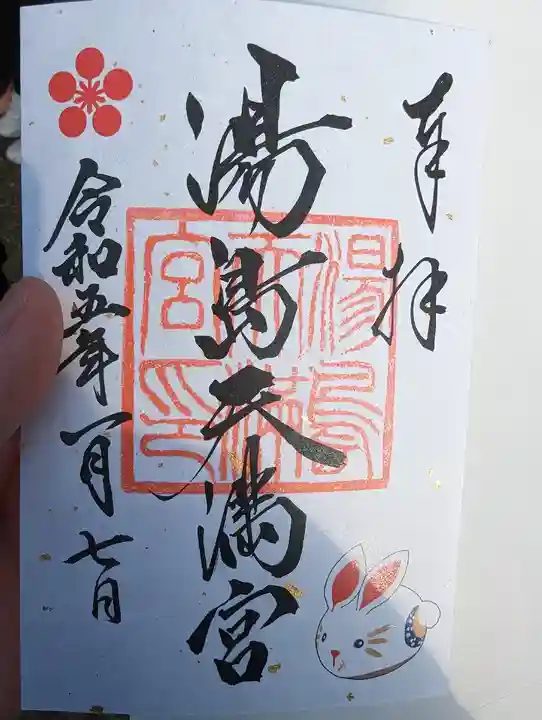 奉拝
湯島天満宮
湯島天満宮印
令和五年一月七日